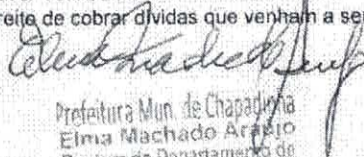 reito de cobrar dívidas que venham a se
Prefeitura Mun. de Chapadinha
Elma Machado Araújo
Departamento de